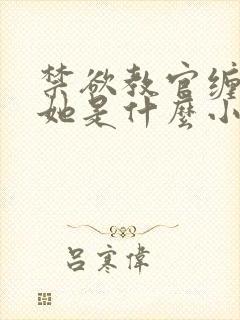 禁欲教官缠
她是什麽小
吕寒偉